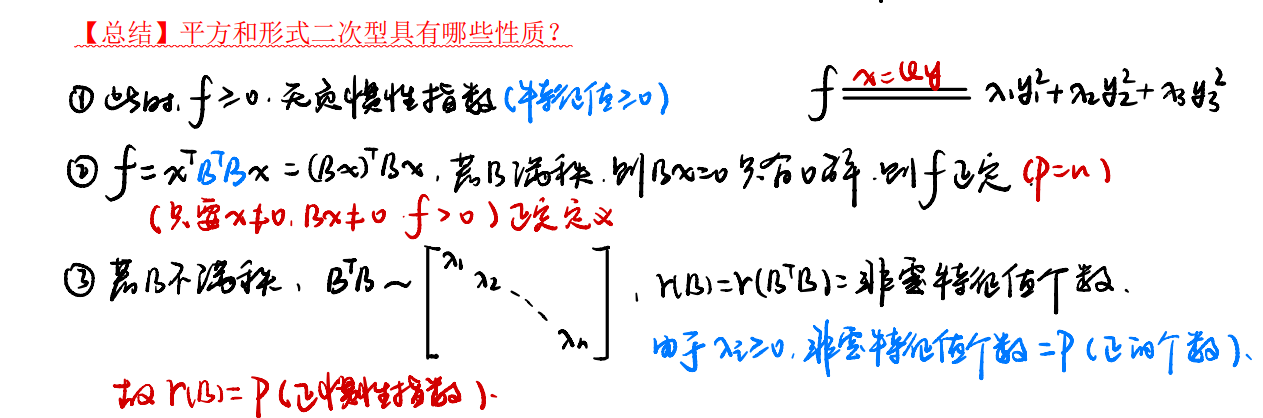 【总结】平方和形式二次型具有哪些性质？
① 此时, f≥0. 无负惯性指数 (特征值≥0)
f x=Qy λ₁y₁²+λ₂y₂²+λ₃y₃²
② f=xᵀBᵀBx=(Bx)ᵀBx, 若B满秩. 则Bx=0只有0解. 则f正定 (p=n)
(只要x≠0, Bx≠0 f>0) 正定定义
③ 若B不满秩, BᵀB~[λ₁ λ₂ ⋱ λₙ], r(B)=r(BᵀB)=非零特征值个数.
由于λᵢ≥0, 非零特征值个数=P (正的个数).
故r(B)=P (正惯性指数).